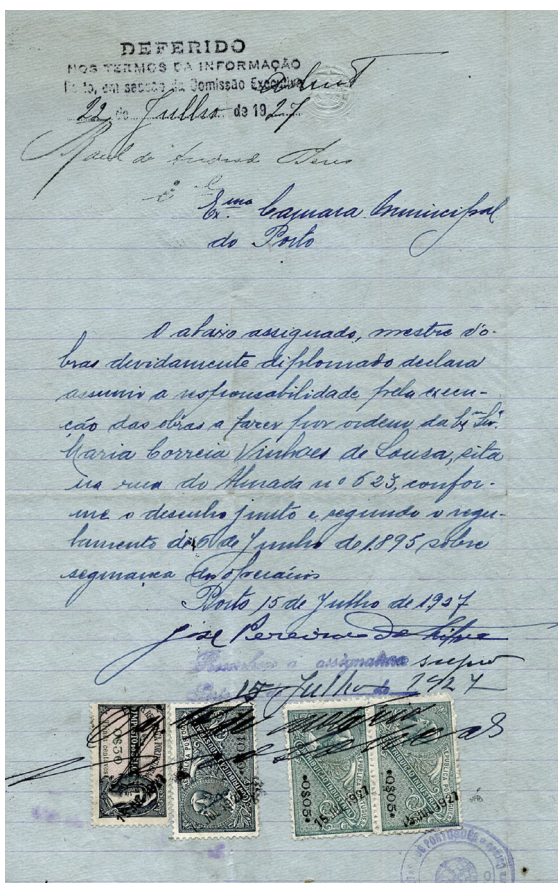 DEFERIDO
NOS TERMOS DA INFORMAÇÃO
Porto, em sessão da Comissão Executiva
22 de Julho de 1927
Raul de Andrade
Ex.ma Camara Municipal
do Porto
O abaixo assignado, mestre d'o-
bras devidamente diplomado declara
assumir a responsabilidade pela execu-
ção das obras a fazer por ordem da Ex.ma Snr.a
Maria Correia Vinhaes de Sousa, sita
na rua do Almada nº 623, confor-
me o desenho junto e segundo o regu-
lamento de 6 de Junho de 1895 sobre
segurança dos operarios
Porto 15 de Julho de 1927
José Pereira da Silva
Reconheço a assignatura supra
15 Julho de 1927
0$05 0$05
15 JUL 1927